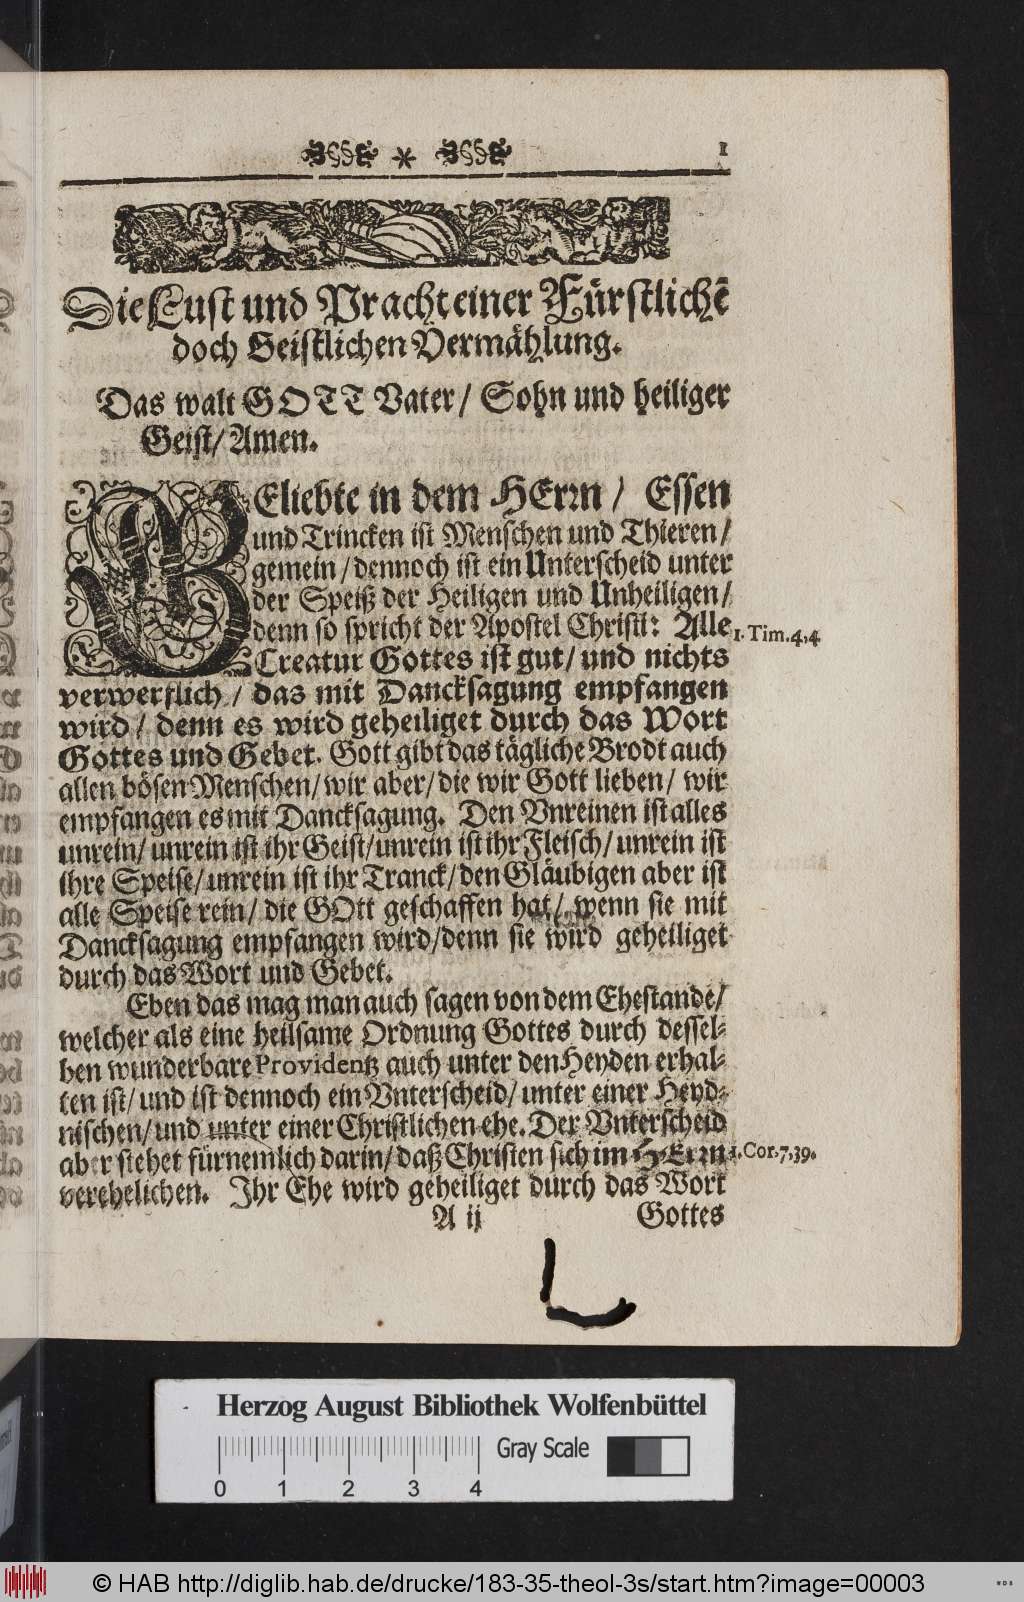 1
Die Lust und Pracht einer Fürstlichẽ
doch Geistlichen Vermählung.
Das walt GOTT Vater/ Sohn und heiliger
Geist/ Amen.
BEliebte in dem HErrn/ Essen
und Trincken ist Menschen und Thieren/
gemein/ dennoch ist ein Unterscheid unter
der Speiß der Heiligen und Unheiligen/
denn so spricht der Apostel Christi: Alle
1. Tim. 4,4
Creatur Gottes ist gut/ und nichts
verwerflich/ das mit Dancksagung empfangen
wird/ denn es wird geheiliget durch das Wort
Gottes und Gebet. Gott gibt das tägliche Brodt auch
allen bösen Menschen/ wir aber/ die wir Gott lieben/ wir
empfangen es mit Dancksagung. Den Vnreinen ist alles
unrein/ unrein ist ihr Geist/ unrein ist ihr Fleisch/ unrein ist
ihre Speise/ unrein ist ihr Tranck/ den Gläubigen aber ist
alle Speise rein/ die GOtt geschaffen hat/ wenn sie mit
Dancksagung empfangen wird/ denn sie wird geheiliget
durch das Wort und Gebet.
Eben das mag man auch sagen von dem Ehestande/
welcher als eine heilsame Ordnung Gottes durch dessel-
ben wunderbare Providentz auch unter den Heyden erhal-
ten ist/ und ist dennoch ein Vnterscheid/ unter einer Heyd-
nischen/ und unter einer Christlichen ehe. Der Vnterscheid
aber stehet fürnemlich darin/ daß Christen sich im HErrn
1. Cor. 7,39.
verehelichen. Ihr Ehe wird geheiliget durch das Wort
A ij
Gottes
Herzog August Bibliothek Wolfenbüttel
Gray Scale
0 1 2 3 4
© HAB http://diglib.hab.de/drucke/183-35-theol-3s/start.htm?image=00003